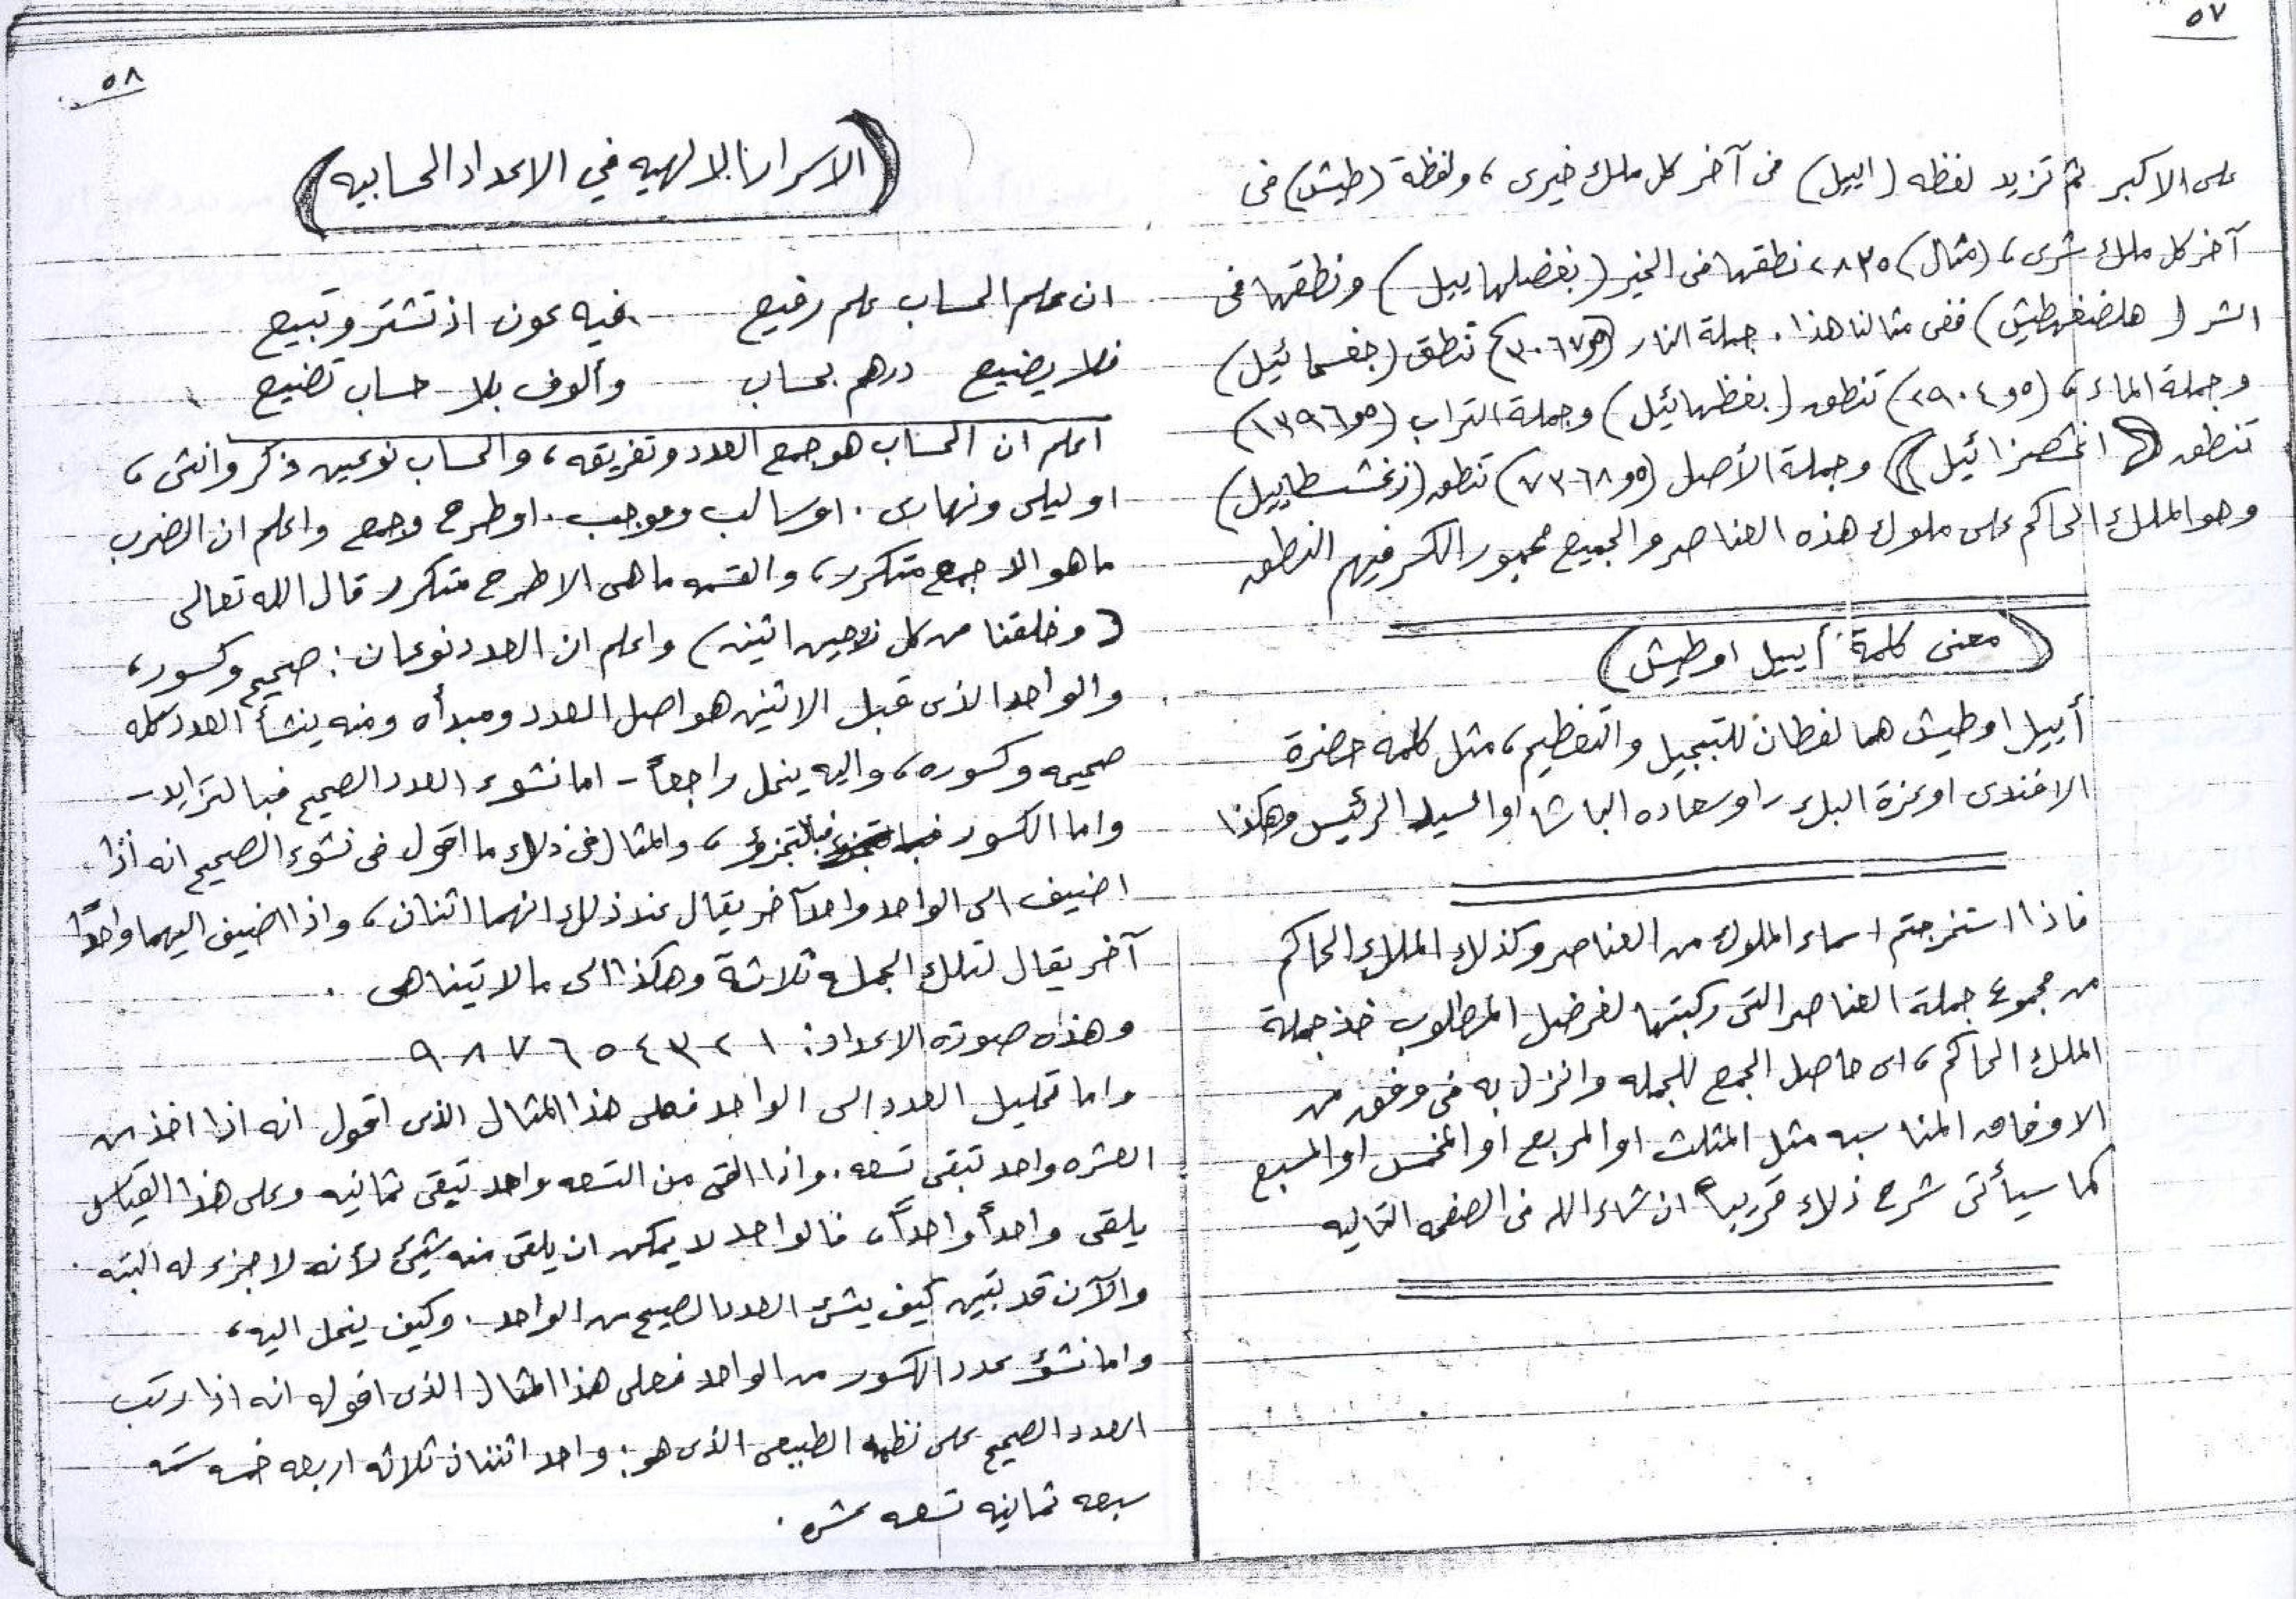 ٥٧
على الاكبر ثم تزيد لفظه (اييل) فى آخر كل ملك خيرى، ولفظة (طيش) فى
آخر كل ملك شرى، (مثال) ٢٨٣٥ نطقها فى الخير (بغضلهاييل) ونطقها فى
الشر (هلضغبطيش) ففى مثالنا هذا. جملة النار تنطق (جغسمائيل)
وجملة الماء، (٥و٢٩٠٤) تنطق (بغظدائيل) وجملة التراب (٥و١٣٩٦)
تنطق (اغشصزائيل) وجملة الأصل (٥و٧٣٦٨) تنطق (زغشسطاييل)
وهو الملك الحاكم على ملوك هذه العناصر والجميع مجبور الكسر فيهم النطق
(معنى كلمة أييل او طيش)
أييل او طيش هما لفظان للتبجيل والتعظيم، مثل كلمه حضرة
الافندى او عزة البك او سعاده الباشا او السيد الرئيس وهكذا
فاذا استخرجتم اسماء الملوك من العناصر وكذلك الملك الحاكم
من مجموع جملة العناصر التى ركبتها لغرضك المطلوب خذ جملة
الملك الحاكم، اى حاصل الجمع للجمله وانزل به فى وفق من
الاوفاق المناسبه مثل المثلث او المربع او المخمس او المسبع
كما سيأتى شرح ذلك قريباً ان شاء الله فى الصفحه التاليه
٥٨
(الاسرار الالهيه في الاعداد الحسابيه)
ان علم الحساب علم رفيع فيه عون اذ تشتر وتبيع
فلا يضيع درهم بحساب وألوف بلا حساب تضيع
اعلم ان الحساب هو جمع العدد وتفريقه، والحساب نوعين ذكر وانثى،
او ليلى ونهارى. او سالب وموجب. او طرح وجمع واعلم ان الضرب
ما هو الا جمع متكرر، والقسمه ما هى الا طرح متكرر قال الله تعالى
(وخلقنا من كل زوجين اثنين) واعلم ان العدد نوعان: صحيح وكسور،
والواحد الذى قبل الاثنين هو اصل العدد ومبدأه ومنه ينشأ العدد كله
صحيحه وكسوره، واليه ينحل راجعاً - اما نشوء العدد الصحيح فبالتزايد -
واما الكسور فبالتجزؤ، والمثال فى ذلك ما اقول فى نشوء الصحيح انه اذا
اضيف الى الواحد واحداً آخر يقال عند ذلك انهما اثنان، واذا اضيف اليهما واحداً
آخر يقال لتلك الجمله ثلاثة وهكذا الى ما لا يتناهى.
وهذه صورة الاعداد: ١ ٢ ٣ ٤ ٥ ٦ ٧ ٨ ٩
واما تحليل العدد الى الواحد فعلى هذا المثال الذى اقول انه اذا اخذ من
العشره واحد تبقى تسعه. واذا القى من التسعه واحد تبقى ثمانيه وعلى هذا القياس
يلقى واحداً واحداً، فالواحد لا يمكن ان يلقى منه شيئ لأنه لا جزء له البته.
والآن قد تبين كيف ينشئ العدد الصحيح من الواحد. وكيف ينحل اليه،
واما نشؤ عدد الكسور من الواحد فعلى هذا المثال الذى اقوله انه اذا رتب
العدد الصحيح على نظمه الطبيعى الذى هو: واحد اثننان ثلاثه اربعه خمسه سته
سبعه ثمانيه تسعه عشره.